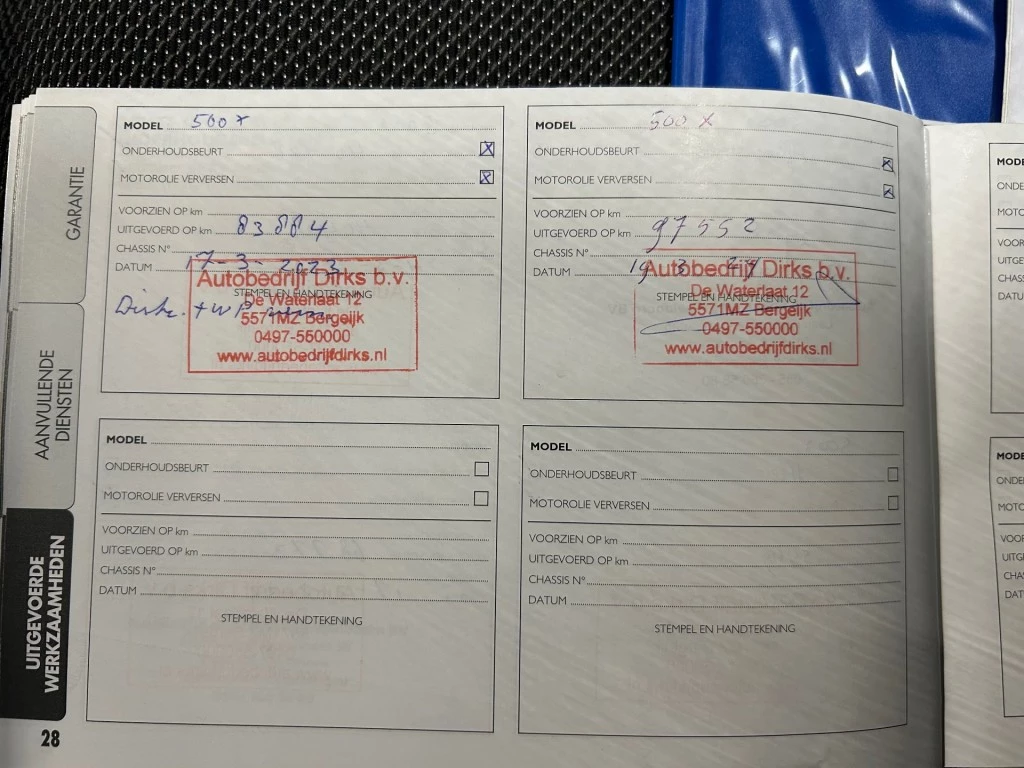 GARANTIE
AANVULLENDE
DIENSTEN
UITGEVOERDE
WERKZAAMHEDEN
28
MODEL 500 x
ONDERHOUDSBEURT X
MOTOROLIE VERVERSEN X
VOORZIEN OP km
UITGEVOERD OP km 83884
CHASSIS N°
DATUM 17-3-2023
STEMPEL EN HANDTEKENING
Autobedrijf Dirks b.v.
De Waterlaat 12
5571MZ Bergeijk
0497-550000
www.autobedrijfdirks.nl
MODEL 500 X
ONDERHOUDSBEURT X
MOTOROLIE VERVERSEN X
VOORZIEN OP km
UITGEVOERD OP km 97552
CHASSIS N°
DATUM 19 3
STEMPEL EN HANDTEKENING
Autobedrijf Dirks b.v.
De Waterlaat 12
5571MZ Bergeijk
0497-550000
www.autobedrijfdirks.nl
MODEL
ONDERHOUDSBEURT
MOTOROLIE VERVERSEN
VOORZIEN OP km
UITGEVOERD OP km
CHASSIS N°
DATUM
STEMPEL EN HANDTEKENING
MODEL
ONDERHOUDSBEURT
MOTOROLIE VERVERSEN
VOORZIEN OP km
UITGEVOERD OP km
CHASSIS N°
DATUM
STEMPEL EN HANDTEKENING